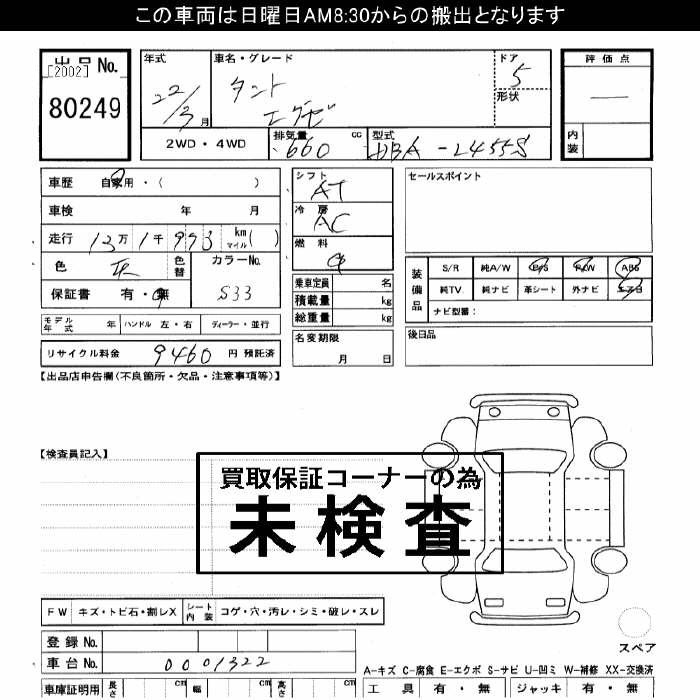 この車両は日曜日AM8:30からの搬出となります
出品 No.
[2002]
80249
年式
22/3月
車名・グレード
タント
エグゼ
ドア
5
形状
評価点
—
内装
2WD・4WD
排気量 cc
660
型式
DBA-L455S
車歴 自家用・( )
車検 年 月
走行 13万1千973 km マイル( )
色 灰 色替
カラーNo.
S33
保証書 有・無
モデル年式 年 ハンドル 左・右 ディーラー・並行
リサイクル料金 9460 円 預託済
シフト
AT
冷房
AC
燃料
乗車定員 名
積載量 kg
総重量 kg
名変期限
月 日
セールスポイント
装備品
S/R 純A/W P/S P/W ABS
純TV 純ナビ 革シート 外ナビ エアB
ナビ型番:
後日品
【出品店申告欄(不良箇所・欠品・注意事項等)】
【検査員記入】
買取保証コーナーの為
未検査
FW キズ・トビ石・割レX シート内装 コゲ・穴・汚レ・シミ・破レ・スレ
登録No.
車台No. 0001322
車庫証明用 長さ cm 幅 cm 高さ cm
スペア
A-キズ C-腐食 E-エクボ S-サビ U-凹ミ W-補修 XX-交換済
工具 有・無 ジャッキ 有・無